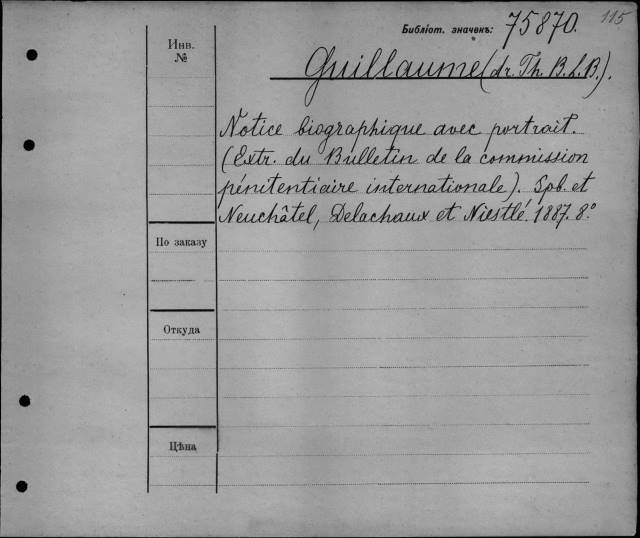 115
Библіот. значекъ: 75870.
Инв.
№
Guillaume (dr. Th. B. L. B.).
Notice biographique avec portrait.
(Extr. du Bulletin de la commission
pénitentiaire internationale). Spb. et
Neuchâtel, Delachaux et Niestlé. 1887. 8º
По заказу
Откуда
Цѣна